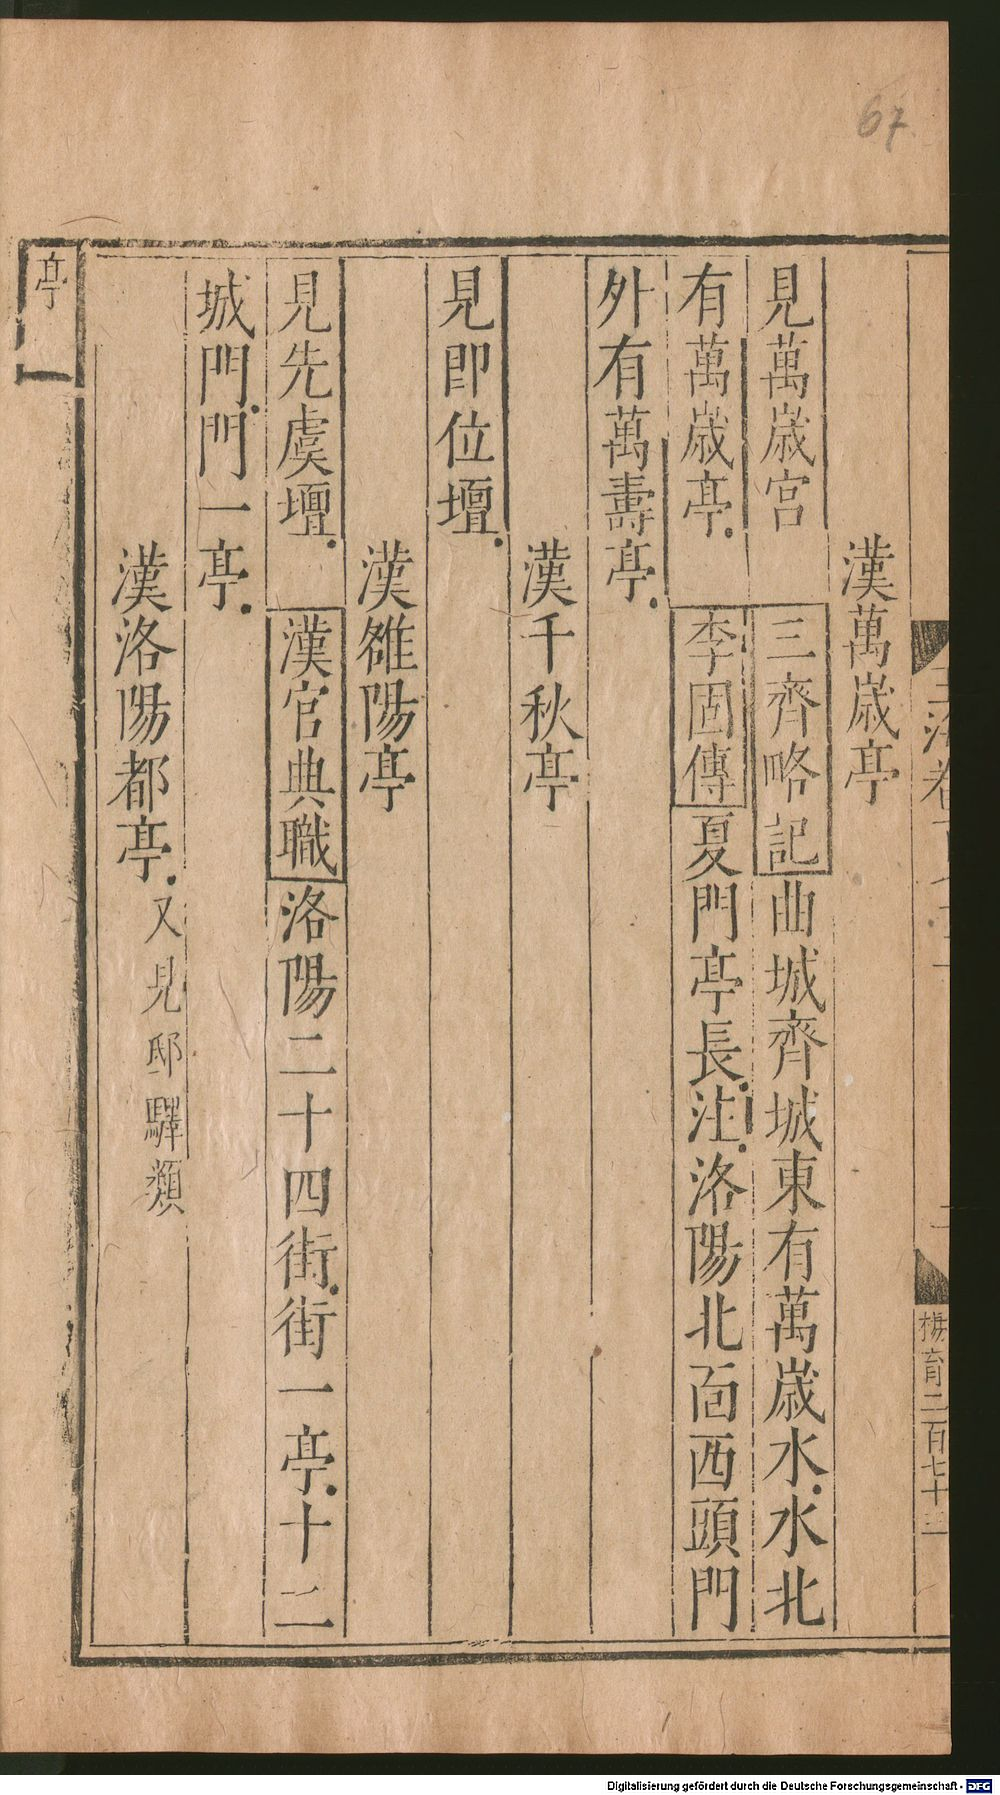 67
漢萬歲亭
見萬歲宮 三齊略記曲城齊城東有萬歲水水北
有萬歲亭 李固傳夏門亭長注洛陽北面西頭門
外有萬壽亭
漢千秋亭
見即位壇
漢雒陽亭
見先虞壇 漢官典職洛陽二十四街街一亭十二
城門門一亭
漢洛陽都亭又見邸驛類
亭
Digitalisierung gefördert durch die Deutsche Forschungsgemeinschaft - DFG